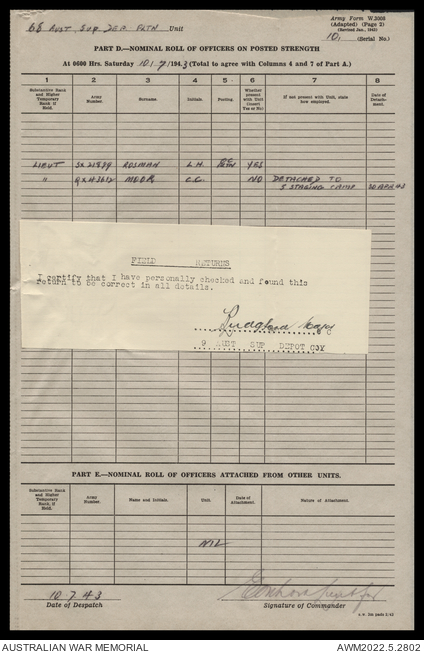 68 AUST SUP DEP PLTN Unit
Army Form W.3008
(Adapted) (Page 2)
(Revised Jan., 1943)
10. (Serial No.)
PART D.—NOMINAL ROLL OF OFFICERS ON POSTED STRENGTH
At 0600 Hrs. Saturday 10/7/1943 (Total to agree with Columns 4 and 7 of Part A.)
1 2 3 4 5 6 7 8
Substantive Rank and Higher Temporary Rank if Held. Army Number. Surname Initials. Posting. Whether present with Unit (Insert Yes or No) If not present with Unit, state how employed. Date of Detachment.
LIEUT SX21899 ROSMAN L.H. YES
" QX43612 MOOR C.C. NO DETACHED TO
5 STAGING CAMP 20 APR 43
FIELD RETURNS
I certify that I have personally checked and found this
return to be correct in all details.
9 AUST SUP DEPOT COY
PART E.—NOMINAL ROLL OF OFFICERS ATTACHED FROM OTHER UNITS.
Substantive Rank and Higher Temporary Rank, if Held. Army Number. Name and Initials. Unit. Date of Attachment. Nature of Attachment.
NIL
10.7.43
Date of Despatch Signature of Commander
AUSTRALIAN WAR MEMORIAL AWM2022.5.2802